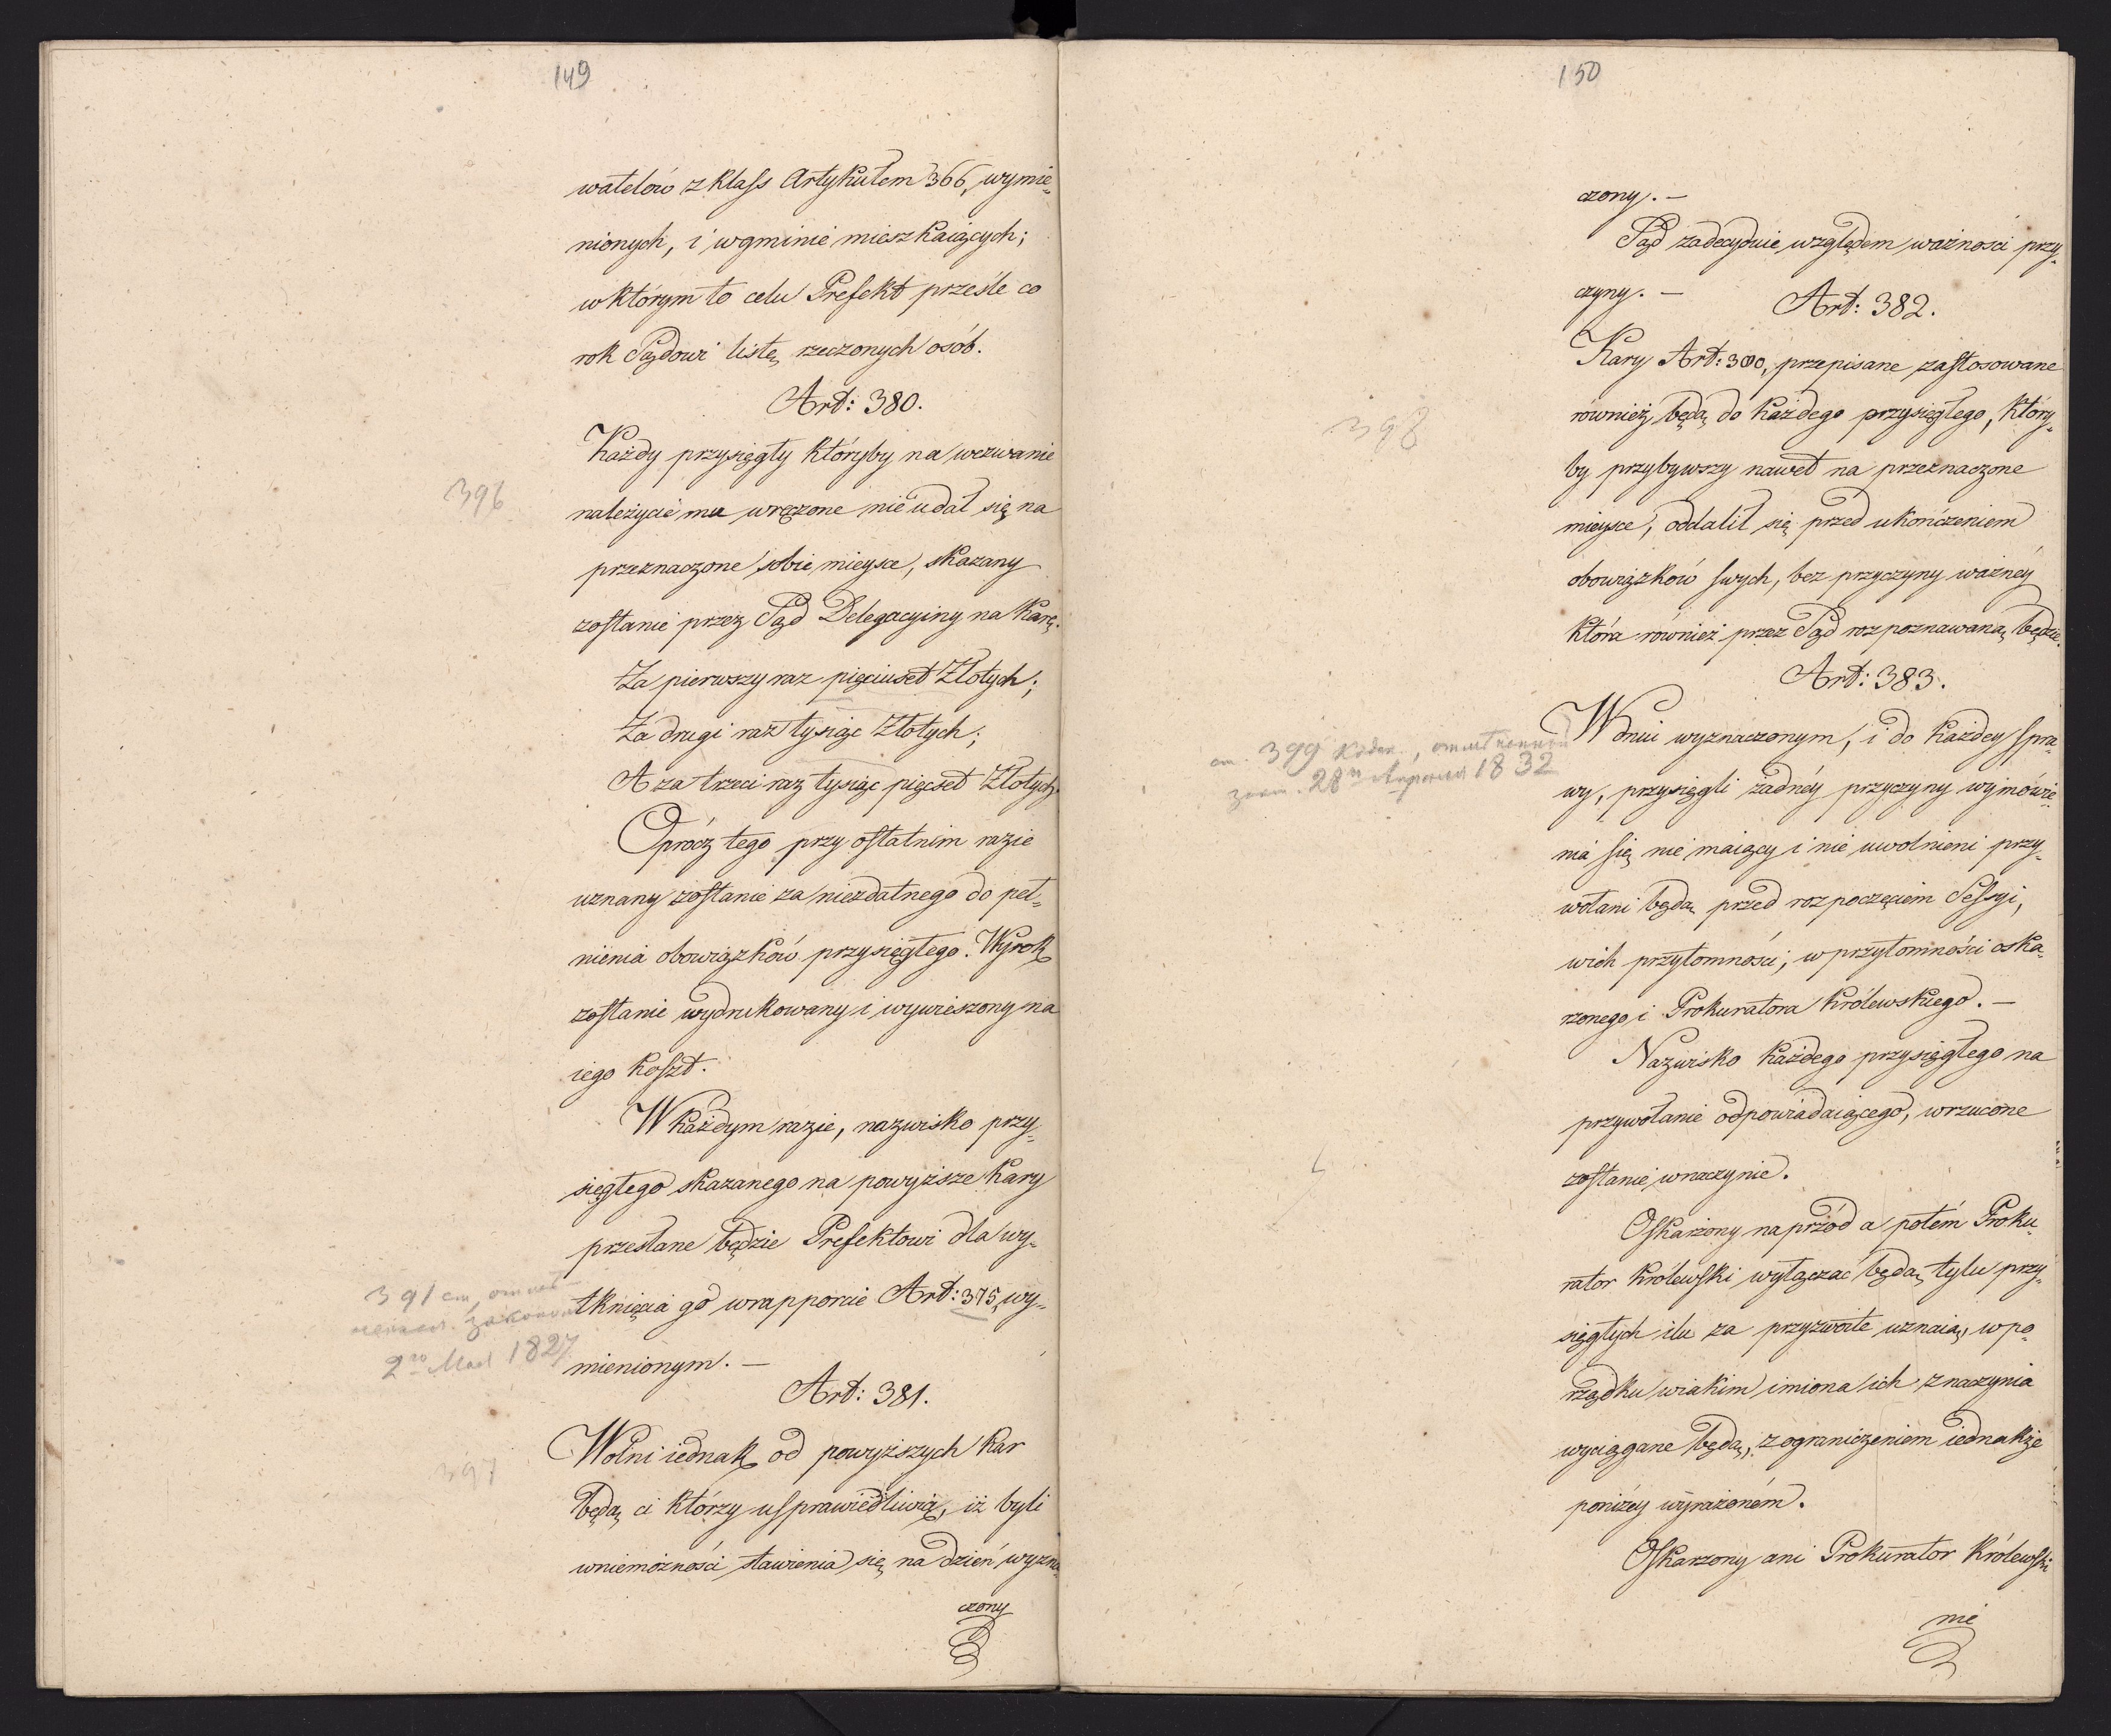 149
watelów z klass Artykułem 366, wymie„
nionych, i w gminie mieszkaiących;
w którym to celu Prefekt prześle co
rok Sądowi listę rzeczonych osób.
Art: 380.
Każdy przysięgły któryby na wezwanie
396
należycie mu wręczone nie udał się na
przeznaczone sobie mieysce, skazany
zostanie przez Sąd Delegacyiny na karę.
Za pierwszy raz pięciuset Złotych;
Za drugi raz tysiąc Złotych;
A za trzeci raz tysiąc pięcset Złotych.
Oprócz tego przy ostatnim razie
uznany zostanie za niezdatnego do peł„
nienia obowiązków przysięgłego. Wyrok
zostanie wydrukowany i wywieszony na
iego koszt.
W każdym razie, nazwisko przy„
sięgłego skazanego na powyższe kary
przesłane będzie Prefektowi dla wy„
391
tknięcia go w rapporcie Art: 375, wy„
2го Mai 1827
mienionym. —
Art: 381.
Wolni iednak od powyższych kar
397
będą ci którzy usprawiedliwią, iż byli
w niemożności stawienia się na dzień wyzna„
czony
150
czony. —
Sąd zadecyduie względem ważności przy„
czyny. —
Art: 382.
Kary Art: 380, przepisane zastosowane
398
również będą do każdego przysięgłego, który„
by przybywszy nawet na przeznaczone
mieysce, oddalił się przed ukończeniem
obowiązków swych, bez przyczyny ważnéy
która również przez Sąd rozpoznawaną będzie.
Art: 383.
W dniu wyznaczonym, i do każdey spra„
399
28 1832
wy, przysięgli żadnéy przyczyny wymówie„
nia się nie maiący i nie uwolnieni przy„
wołani będą przed rozpoczęciem Sessyi,
w ich przytomności, w przytomności oska„
rzonego i Prokuratora Królewskiego. —
Nazwisko każdego przysięgłego na
przywołanie odpowiadaiącego, wrzucone
zostanie w naczynie.
Oskarżony naprzód a potém Proku„
rator Królewski wyłączać będą, tylu przy„
sięgłych ilu za przyzwoite uznaią, w po„
rządku w iakim imiona ich z naczynia
wyciągane będą, z ograniczeniem iednakże
poniżéy wyrażoném.
Oskarzony ani Prokurator Królewski
nie